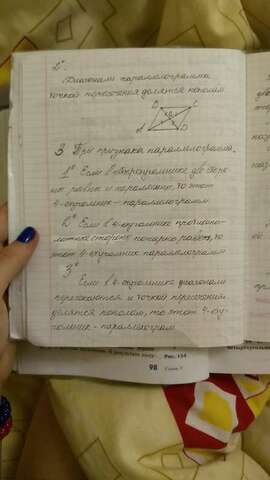 2°.
Диагонали параллелограмма
точкой пересечения делятся пополам
B C
O
A D
3 Три признака параллелограмма.
1° Если в четырехугольнике две сторо
ны равны и параллельны, то этот
4-угольник - параллелограмм
2° Если в 4-угольнике противопо-
ложные стороны попарно равны, то
этот 4-угольник параллелограмм
3°
Если в 4-угольнике диагонали
пересекаются и точкой пересечения
делятся пополам, то этот 4-уг
ольник - параллелограмм
Рис. 154
98